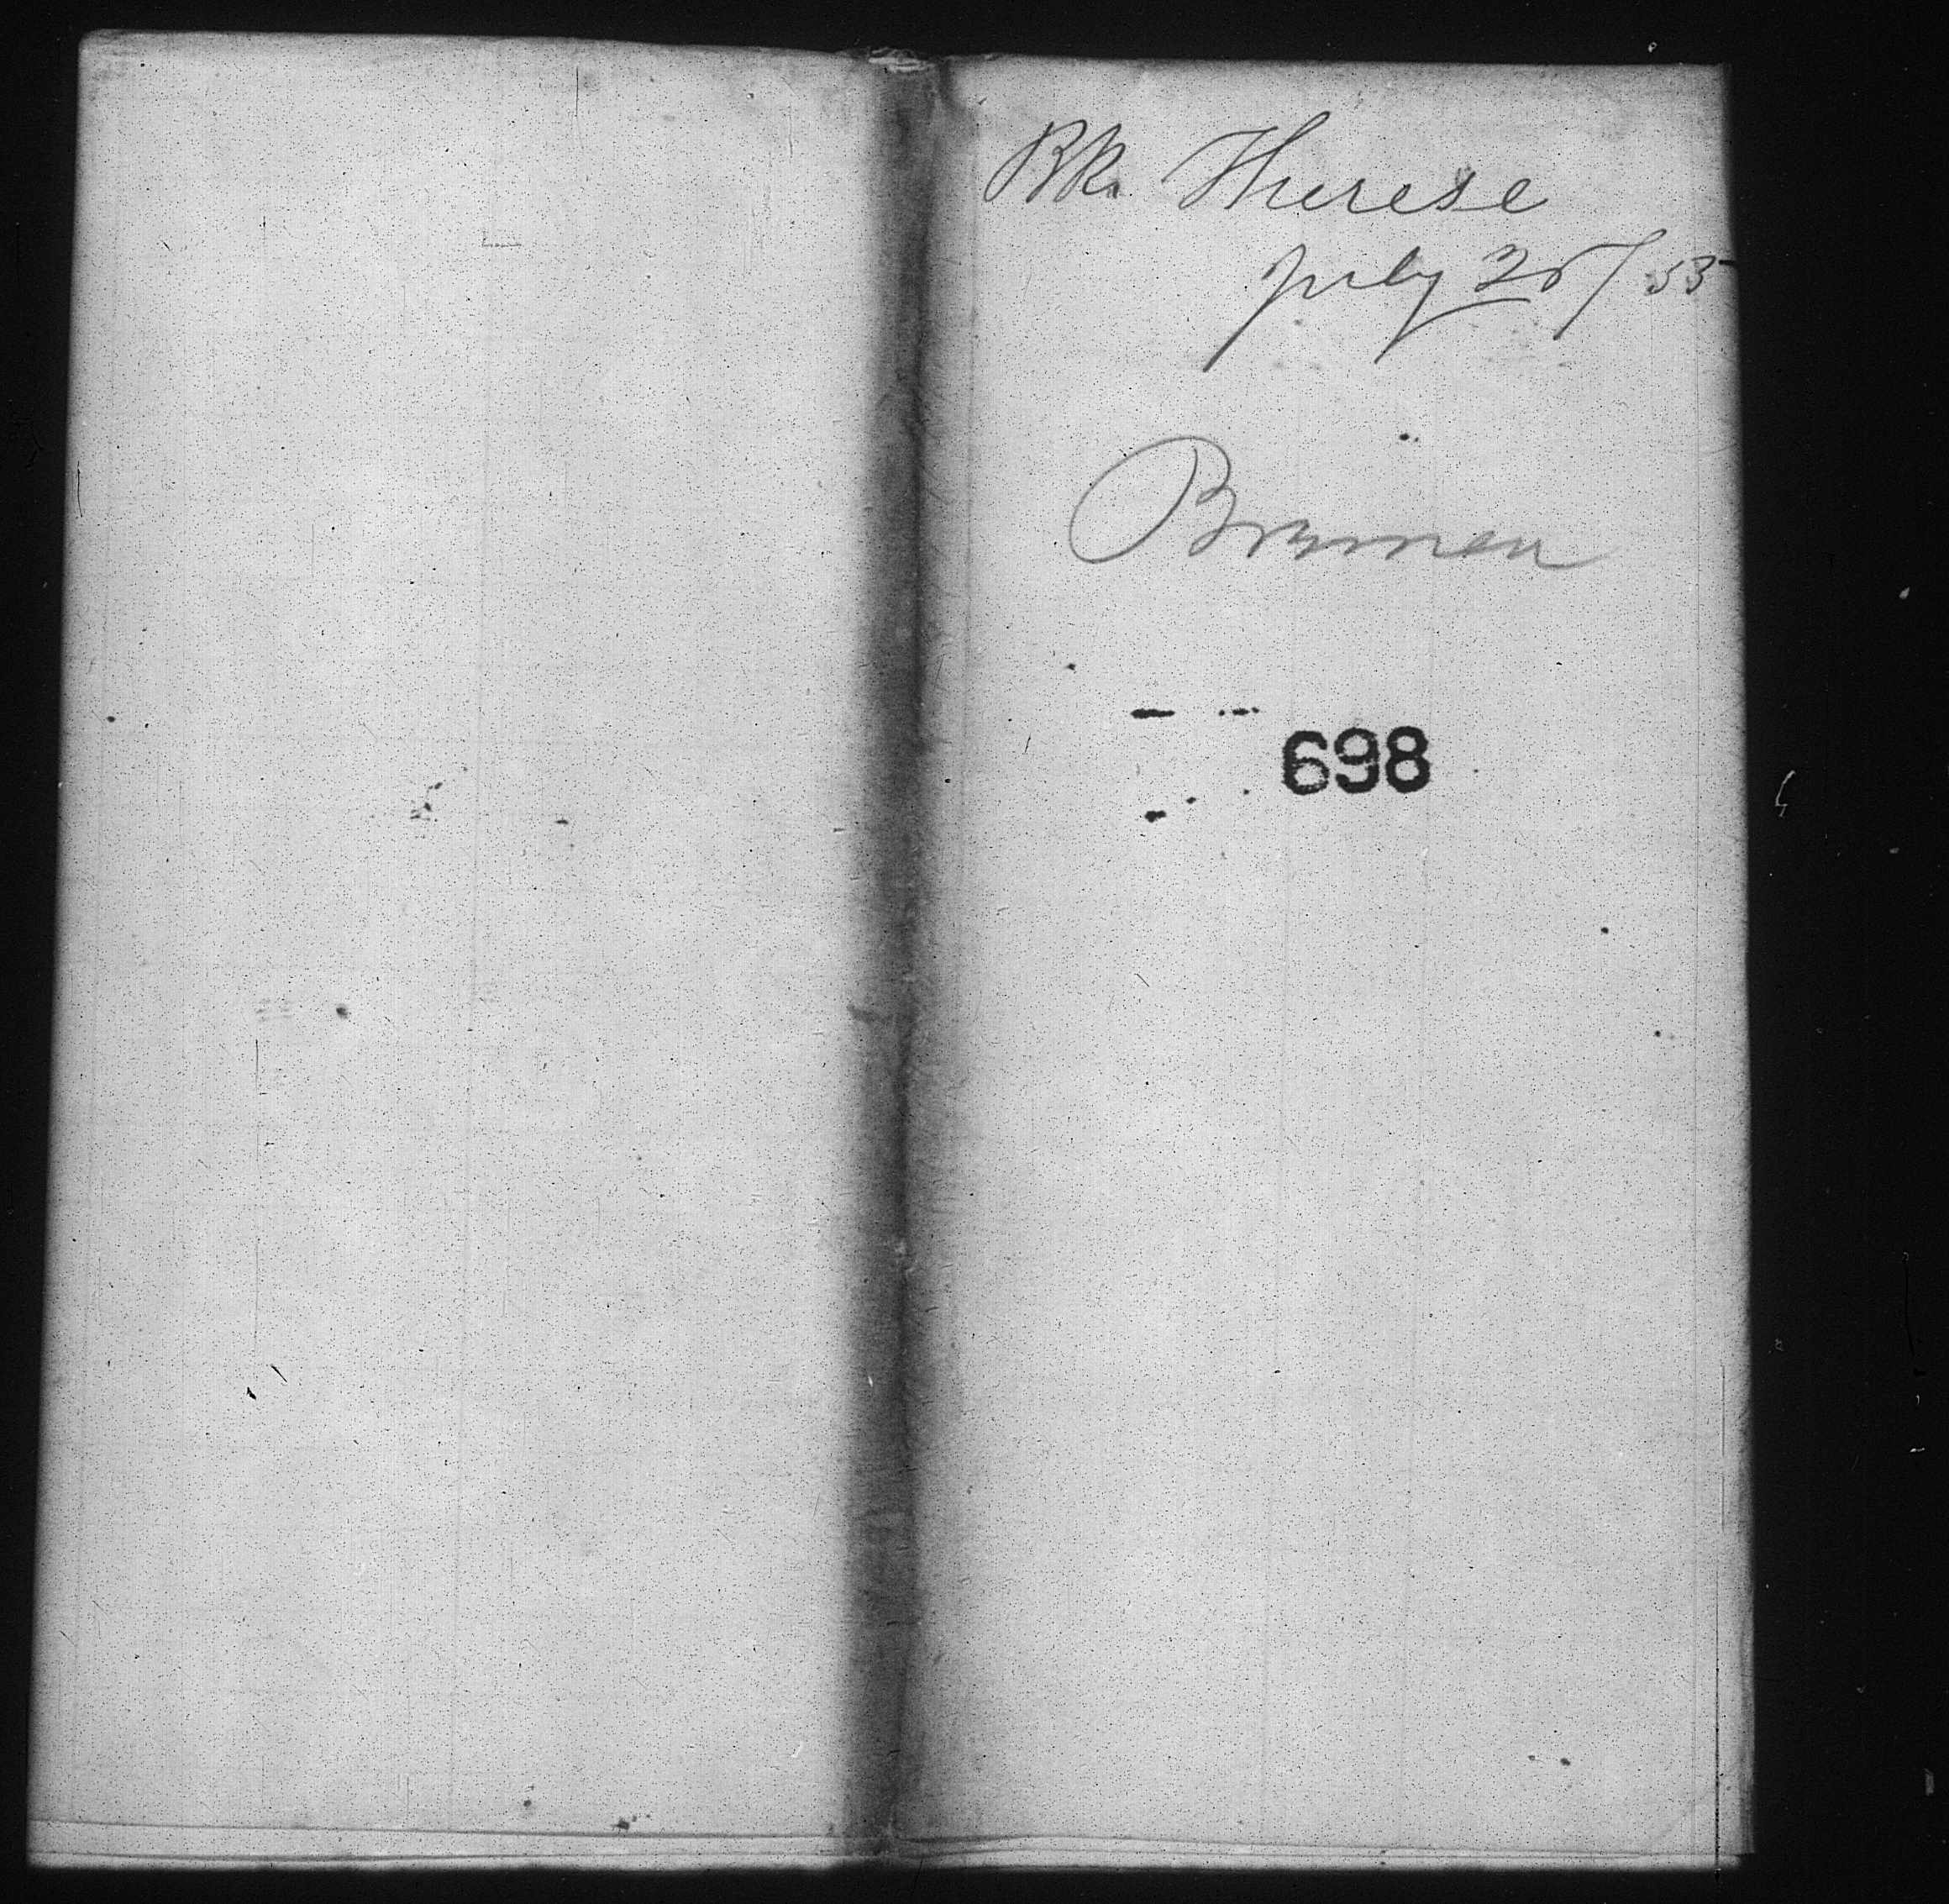 Bk. Therese
July 25/53
Bremen
698